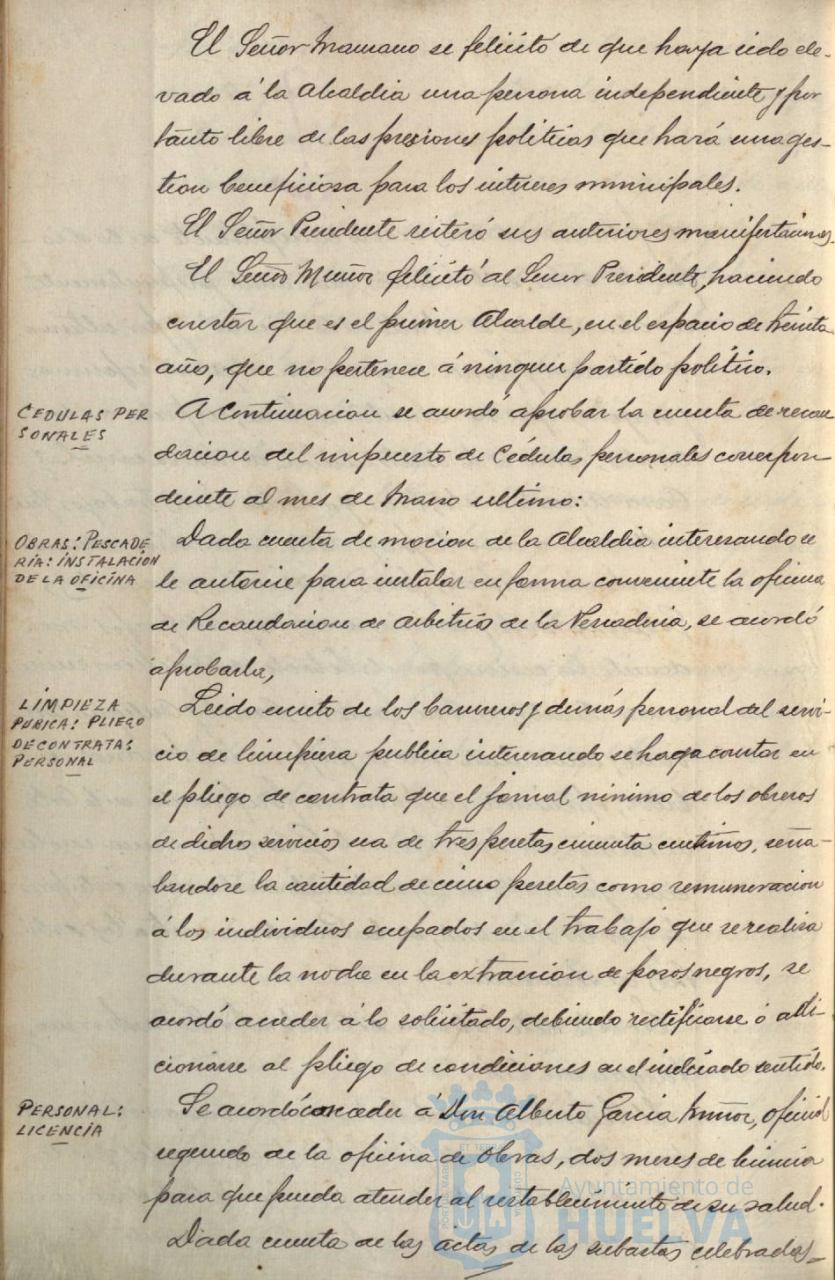 El Señor Mamano se felicitó de que haya sido ele-
vado á la Alcaldia una persona independiente y por
tanto libre de las presiones politicas que hará una ges-
tion beneficiosa para los interes municipales.
El Señor Presidente reiteró sus anteriores manifestaciones.
El Señor Muñoz felicitó al Señor Presidente, haciendo
constar que es el primer Alcalde, en el espacio de treinta
años, que no pertenece á ningun partido politico.
CEDULAS PER
SONALES
A Continuacion se acordó aprobar la cuenta de recau
dacion del impuesto de Cédulas personales correspon
diente al mes de Marzo ultimo:
OBRAS: PESCADE
RÍA: INSTALACION
DE LA OFICINA
Dada cuenta de mocion de la Alcaldia interesando se
le autorice para instalar en forma conveniente la oficina
de Recaudacion de Arbitrios de la Pescaderia, se acordó
aprobarla,
LIMPIEZA
PUBICA: PLIEGO
DE CONTRATA:
PERSONAL
Leido escrito de los barrenderos y demás personal del servi-
cio de limpieza publica interesando se haga constar en
el pliego de contrata que el jornal minimo de los obreros
de didhos servicios sea de tres pesetas cincuenta centimos, seña-
landose la cantidad de cinco pesetas como remuneracion
á los individuos ocupados en el trabajo que se realiza
durante la noche en la extraccion de pozos negros, se
acordó acceder á lo solicitado, debiendo rectificarse ó adi-
cionarse al pliego de condiciones en el indicado sentido.
PERSONAL:
LICENCIA
Se acordó conceder á Don Alberto Garcia Muñoz, oficial
segundo de la oficina de Obras, dos meses de licencia
para que pueda atender al restablecimiento de su salud.
Dada cuenta de las actas de las subastas celebradas
Ayuntamiento de
HUELVA